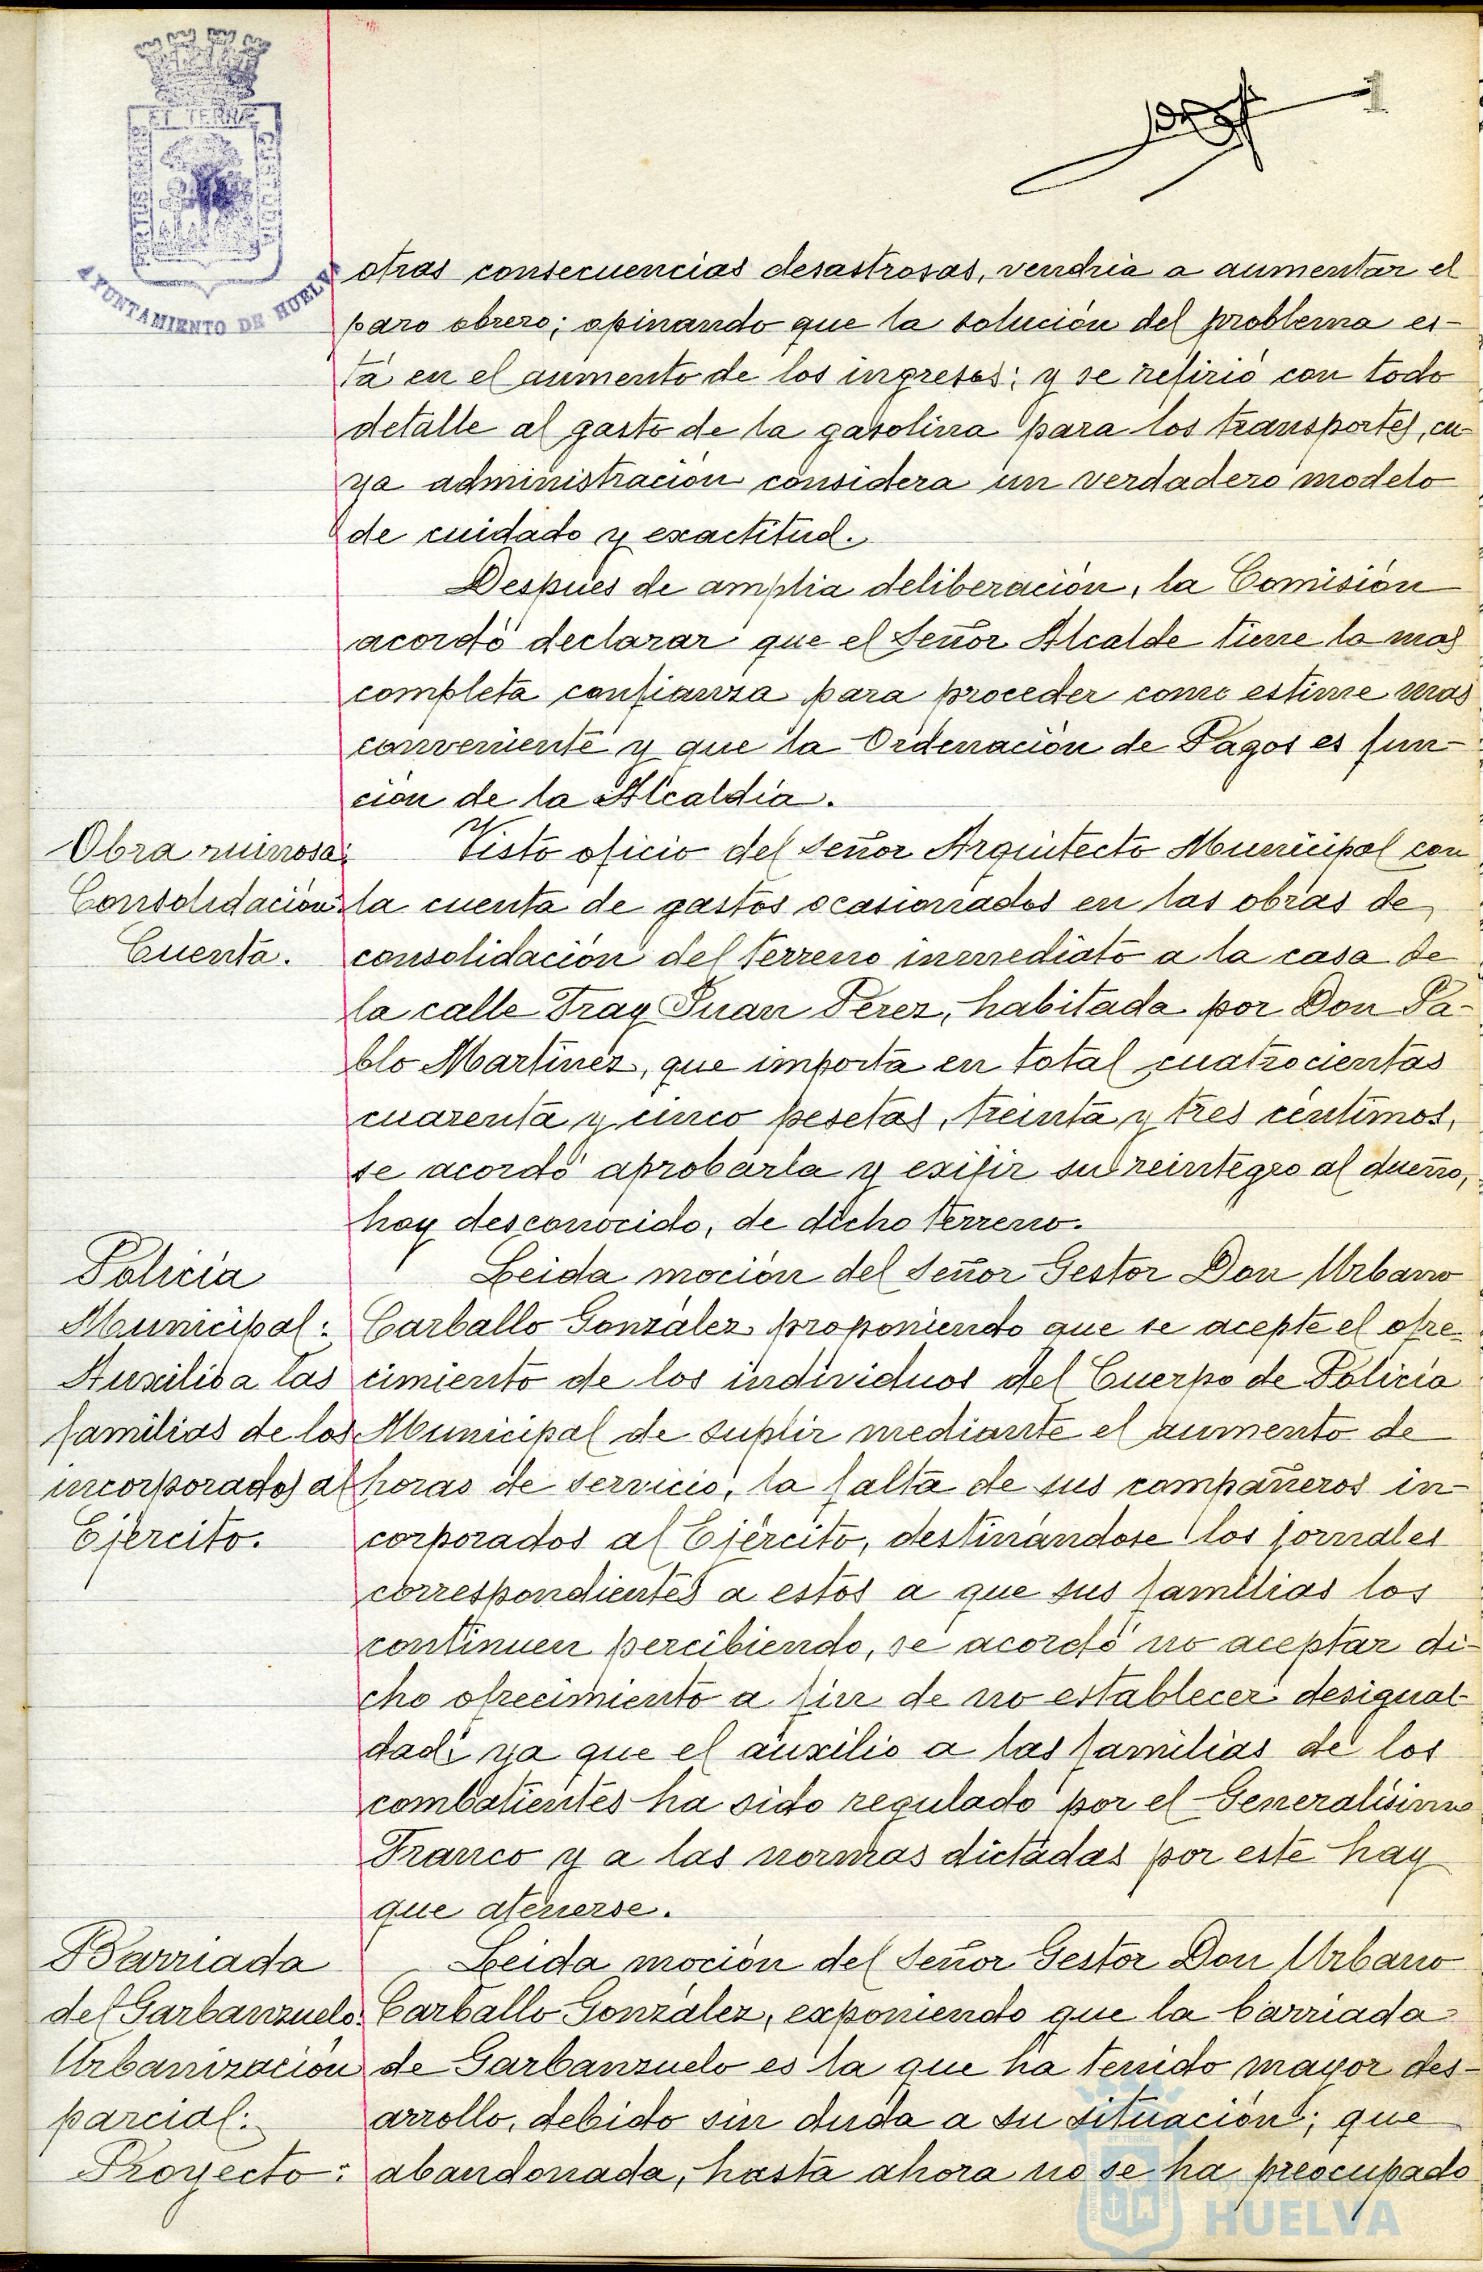 1
ET TERRÆ
AYUNTAMIENTO DE HUELVA
otras consecuencias desastrosas, vendria a aumentar el
paro obrero; opinando que la solución del problema es-
tá en el aumento de los ingresos; y se refirió con todo
detalle al gasto de la gasolina para los transportes, cu-
ya administración considera un verdadero modelo
de cuidado y exactitud.
Despues de amplia deliberación, la Comisión
acordó declarar que el Señor Alcalde tiene la mas
completa confianza para proceder como estime mas
conveniente y que la Ordenación de Pagos es fun-
cion de la Alcaldía.
Obra ruinosa:
Consolidación:
Cuenta.
Visto oficio del Señor Arquitecto Municipal con
la cuenta de gastos ocasionados en las obras de
consolidación del terreno inmediato a la casa de
la calle Fray Juan Perez, habitada por Don Pa-
blo Martinez, que importa en total cuatrocientas
cuarenta y cinco pesetas, treinta y tres céntimos,
se acordó aprobarla y exijir su reintegro al dueño,
hoy desconocido, de dicho terreno.
Policía
Municipal:
Auxilio a las
familias de los
incorporados al
Ejercito.
Leida moción del Señor Gestor Don Urbano
Carballo González proponiendo que se acepte el ofre-
cimiento de los individuos del Cuerpo de Policía
Municipal de suplir mediante el aumento de
horas de servicio, la falta de sus compañeros in-
corporados al Ejército, destinándose los jornales
correspondientes a estos a que sus familias los
continuen percibiendo, se acordó no aceptar di-
cho ofrecimiento a fin de no establecer desigual-
dad; ya que el auxilio a las familias de los
combatientes ha sido regulado por el Generalísimo
Franco y a las normas dictadas por este hay
que atenerse.
Barriada
del Garbanzuelo:
Urbanización
parcial:
Proyecto:
Leida moción del Señor Gestor Don Urbano
Carballo González, exponiendo que la barriada
de Garbanzuelo es la que ha tenido mayor des-
arrollo, debido sin duda a su situación; que
abandonada, hasta ahora no se ha preocupado
Ayuntamiento de
HUELVA